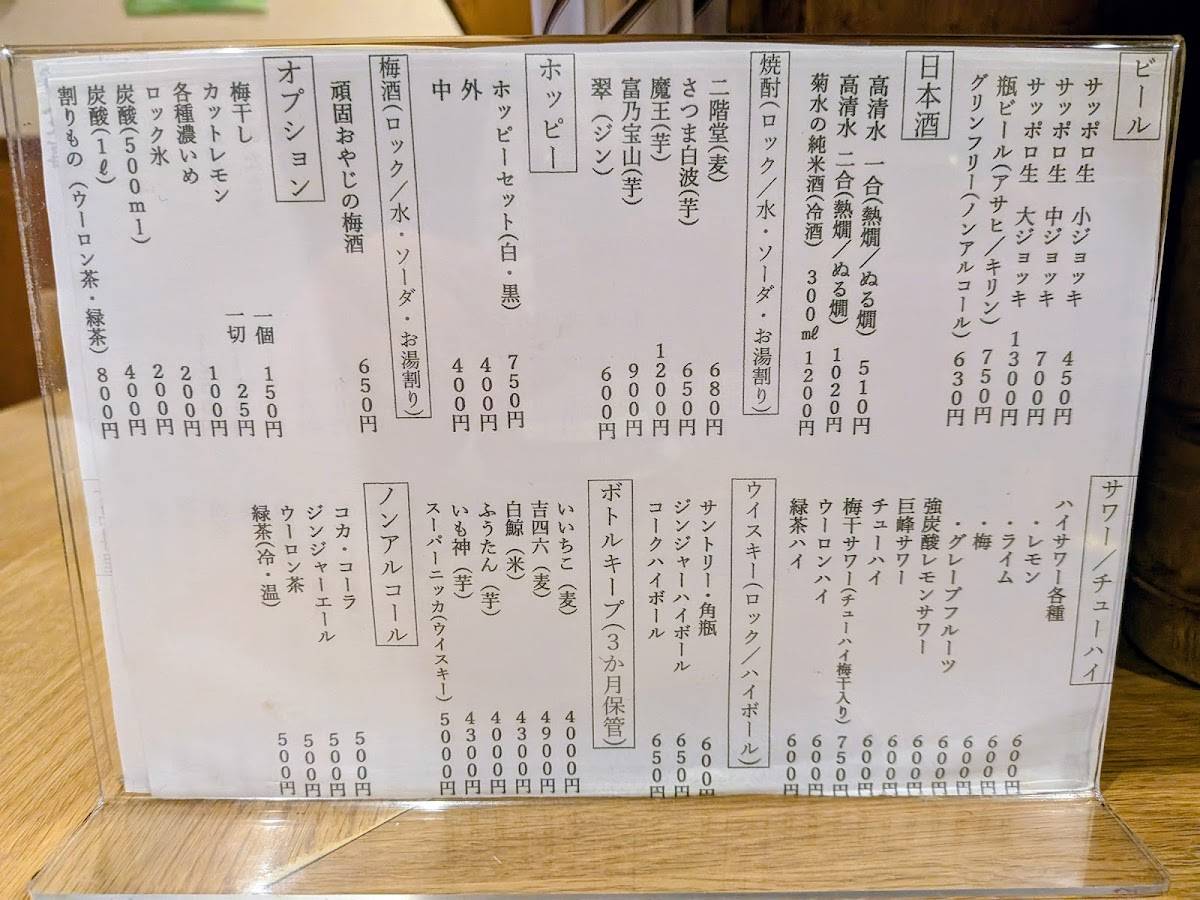 ビール
サッポロ生 小ジョッキ 450円
サッポロ生 中ジョッキ 700円
サッポロ生 大ジョッキ 1300円
瓶ビール(アサヒ/キリン) 750円
グリンフリー(ノンアルコール) 630円
日本酒
高清水 一合(熱燗/ぬる燗) 510円
高清水 二合(熱燗/ぬる燗) 1020円
菊水の純米酒(冷酒) 300㎖ 1200円
焼酎(ロック/水・ソーダ・お湯割り)
二階堂(麦) 680円
さつま白波(芋) 650円
魔王(芋) 1200円
富乃宝山(芋) 900円
翠(ジン) 600円
ホッピー
ホッピーセット(白・黒) 750円
外 400円
中 400円
梅酒(ロック/水・ソーダ・お湯割り)
頑固おやじの梅酒 650円
オプション
梅干し 一個 150円
カットレモン 一切 25円
各種濃いめ 100円
ロック氷 200円
炭酸(500ml) 200円
炭酸(1ℓ) 400円
割りもの(ウーロン茶・緑茶) 800円
サワー/チューハイ
ハイサワー各種
・レモン 600円
・ライム 600円
・梅 600円
・グレープフルーツ 600円
強炭酸レモンサワー 600円
巨峰サワー 600円
チューハイ 600円
梅干サワー(チューハイ梅干入り) 750円
ウーロンハイ 600円
緑茶ハイ 600円
ウイスキー(ロック/ハイボール)
サントリー・角瓶 600円
ジンジャーハイボール 650円
コークハイボール 650円
ボトルキープ(3か月保管)
いいちこ(麦) 4000円
吉四六(麦) 4900円
白鯨(米) 4300円
ふうたん(芋) 4000円
いも神(芋) 4300円
スーパーニッカ(ウイスキー) 5000円
ノンアルコール
コカ・コーラ 500円
ジンジャーエール 500円
ウーロン茶 500円
緑茶(冷・温) 500円